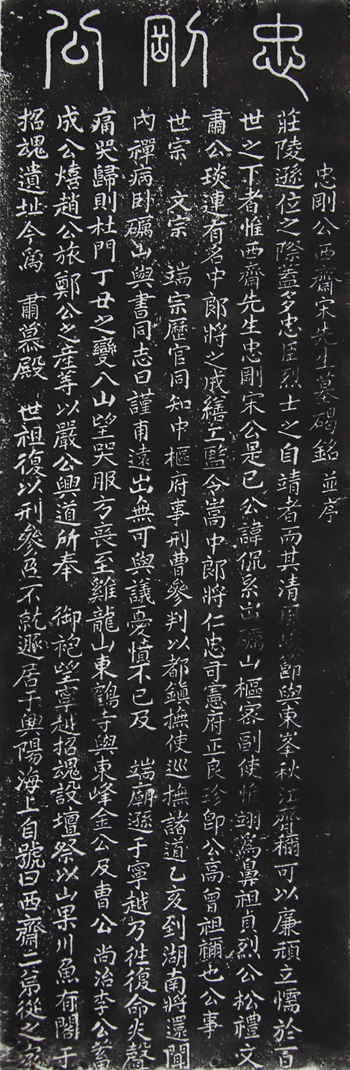 忠剛公
忠剛公西齋宋先生墓碣銘 並序
莊陵遜位之際蓋多忠臣烈士之自靖者而其清風峻節與東峯秋江齊稱可以廉頑立懦於百
世之下者惟西齋先生忠剛宋公是已公諱侃系出礪山樞密副使惟翊為鼻祖貞烈公松禮文
肅公琰連有名中郎將之成繕工監令嵩中郎將仁忠司憲府正良珍卽公高曾祖禰也公事
世宗 文宗 端宗歷官同知中樞府事刑曹參判以都鎮撫使巡撫諸道乙亥到湖南將還聞
內禪病卧礪山與書同志曰謹甫遠出無可與議憂憤不已及 端廟遜于寧越乃往復命失聲
痛哭歸則杜門丁丑之變入山望哭服方喪至雞龍山東鶴寺與東峰金公及曺公尚治李公蓄
成公熺趙公旅鄭公之産等以嚴公興道所奉 御袍望寧越招魂設壇祭以山果川魚有閣于
招魂遺址今為 肅慕殿 世祖復以刑參召不就遯居于興陽海上自號曰西齋二弟從之